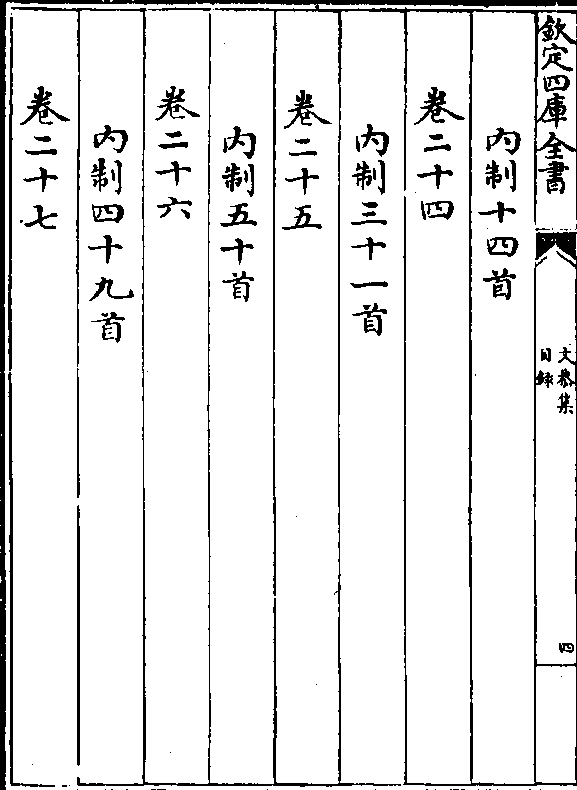 欽定四庫全書
文恭集
目錄
四
內制十四首
卷二十四
內制三十一首
卷二十五
內制五十首
卷二十六
內制四十九首
卷二十七